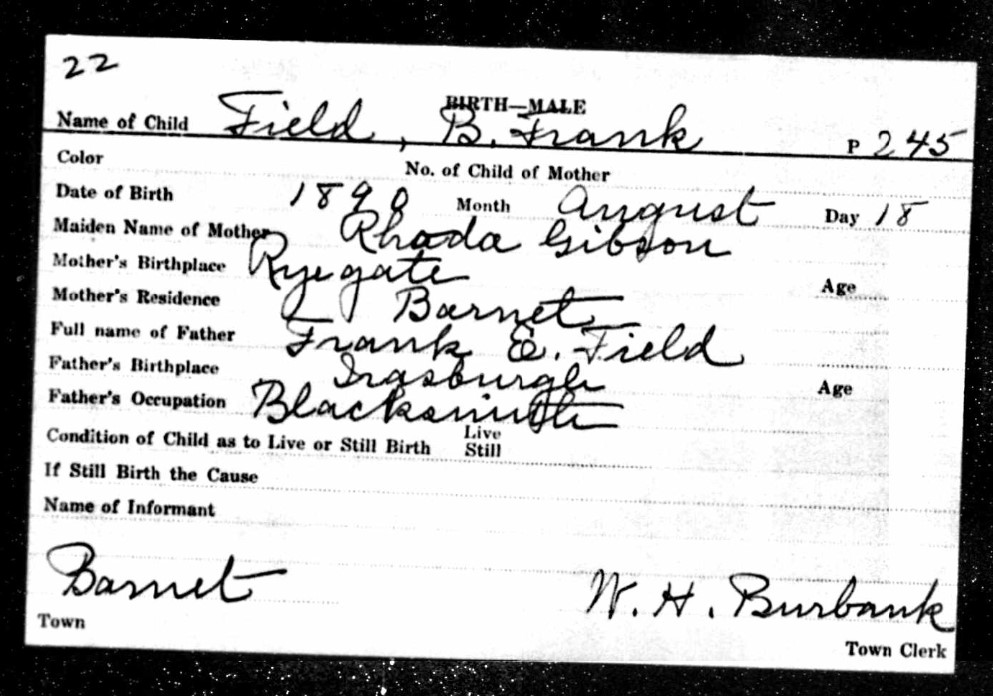 22
BIRTH—MALE
Name of Child Field, B. Frank P 245
Color No. of Child of Mother
Date of Birth 1890 Month August Day 18
Maiden Name of Mother Rhoda Gibson
Mother's Birthplace Ryegate Age
Mother's Residence Barnet
Full name of Father Frank E. Field
Father's Birthplace Irasburgh Age
Father's Occupation Blacksmith
Condition of Child as to Live or Still Birth Live Still
If Still Birth the Cause
Name of Informant
Barnet W. H. Burbank
Town Town Clerk